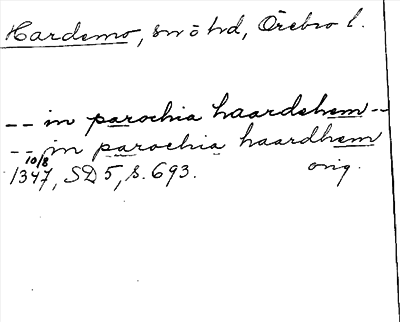 Hardemo, sn o hd, Örebro l.
-- in parochia haardehem --
-- in parochia haardhem
10/8
1347, SD 5, s. 693. orig.